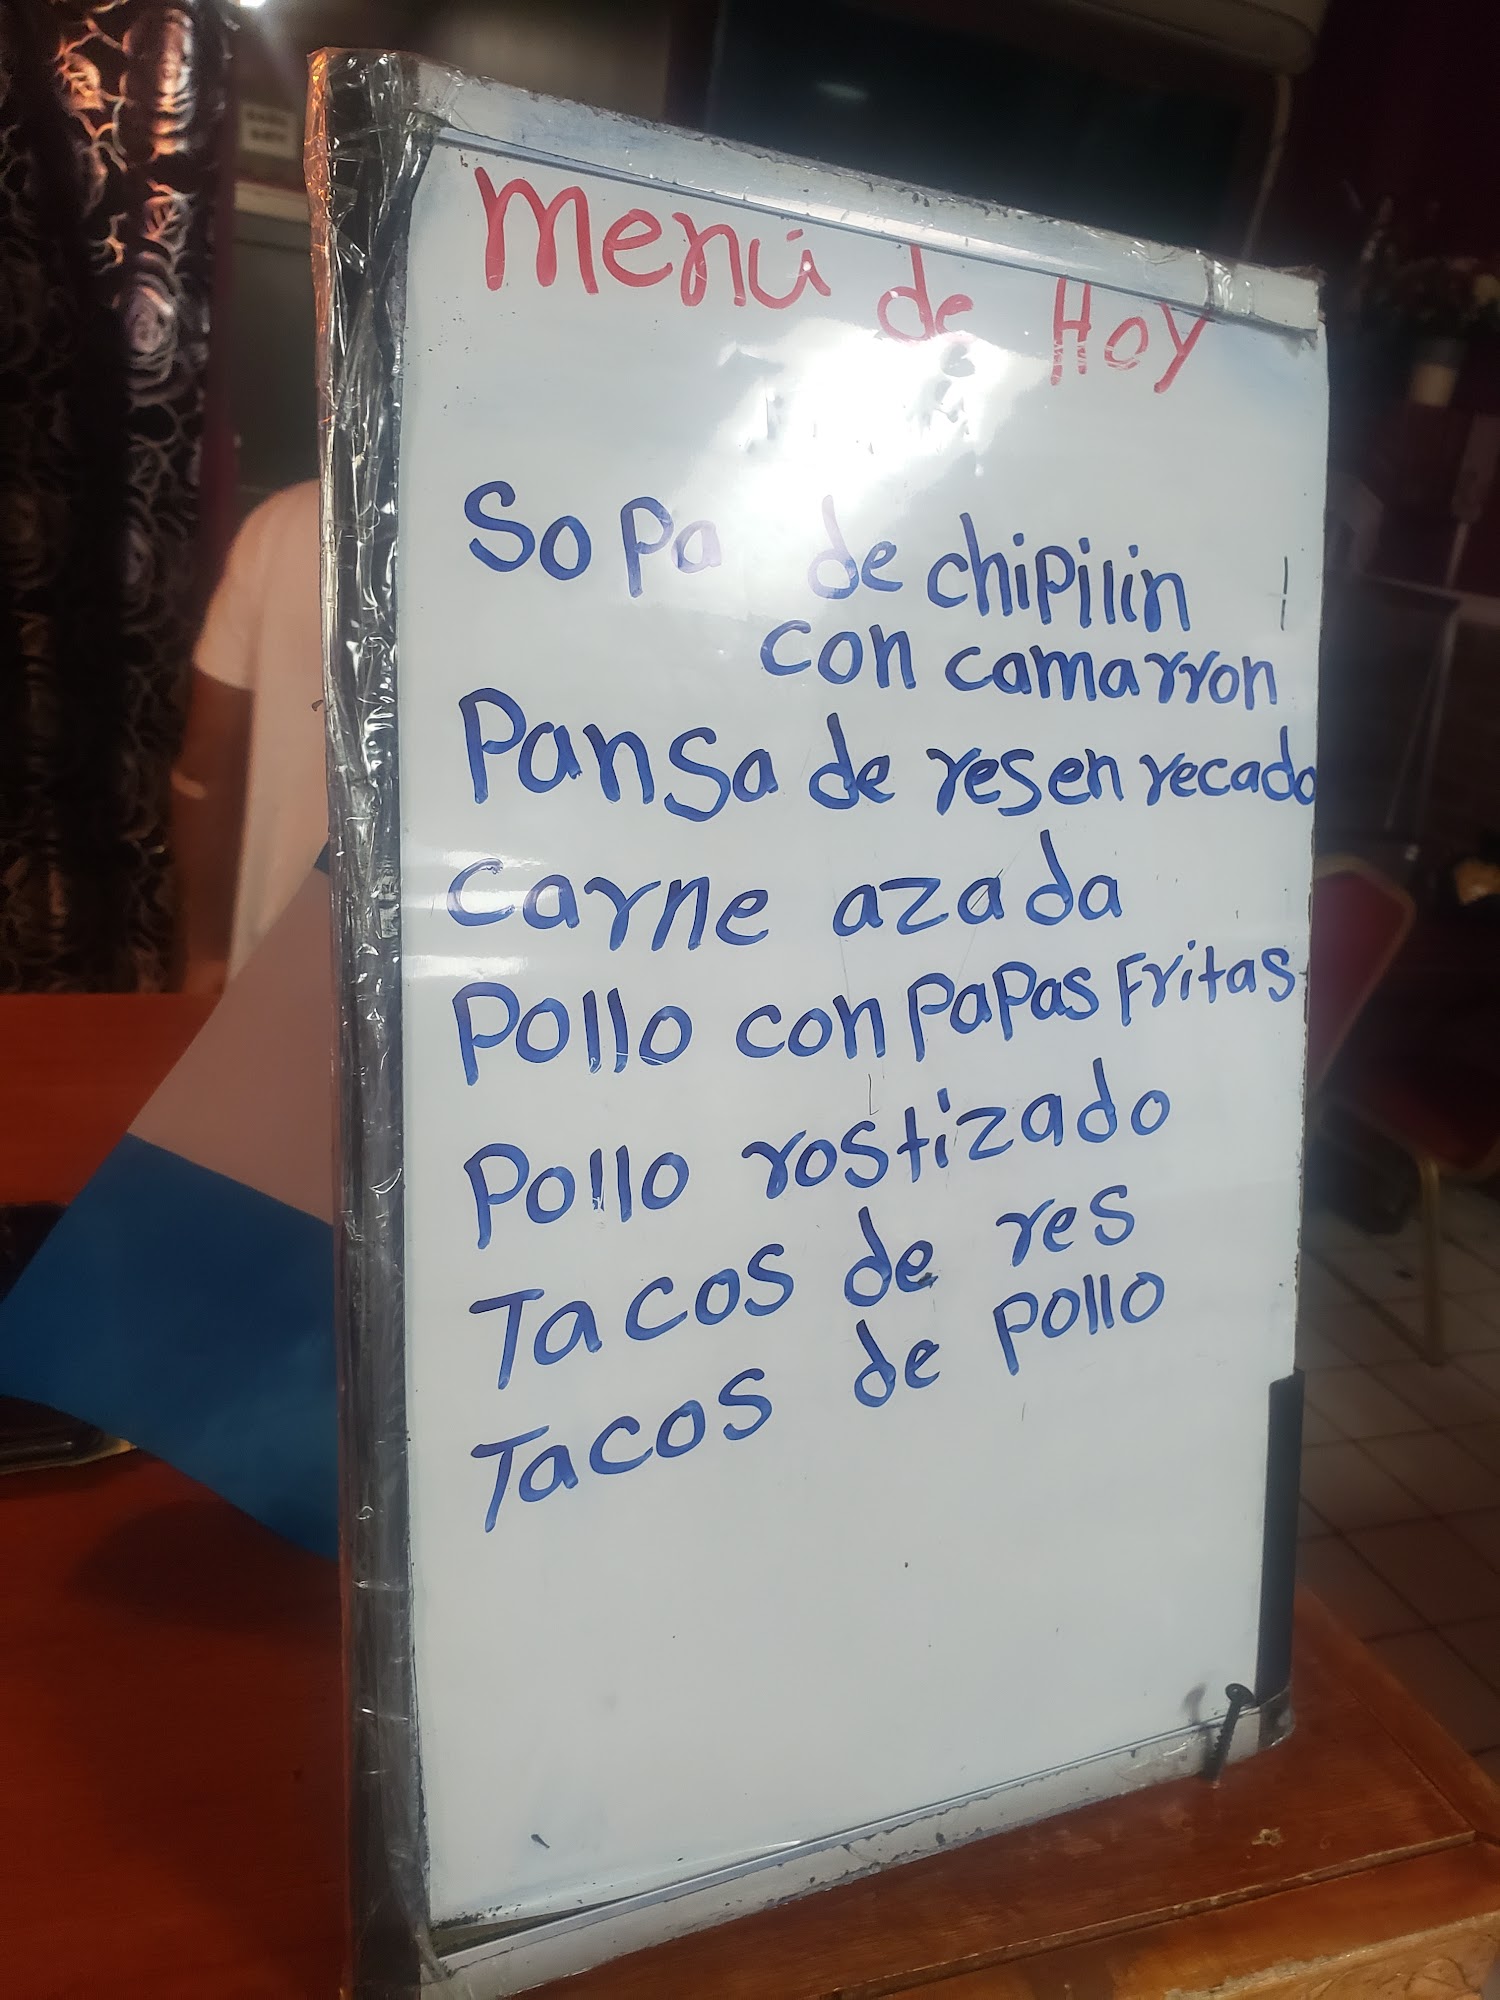 Menú de Hoy
Sopa de chipilin
con camarron
Pansa de res en recado
Carne azada
Pollo con papas Fritas
Pollo rostizado
Tacos de res
Tacos de pollo